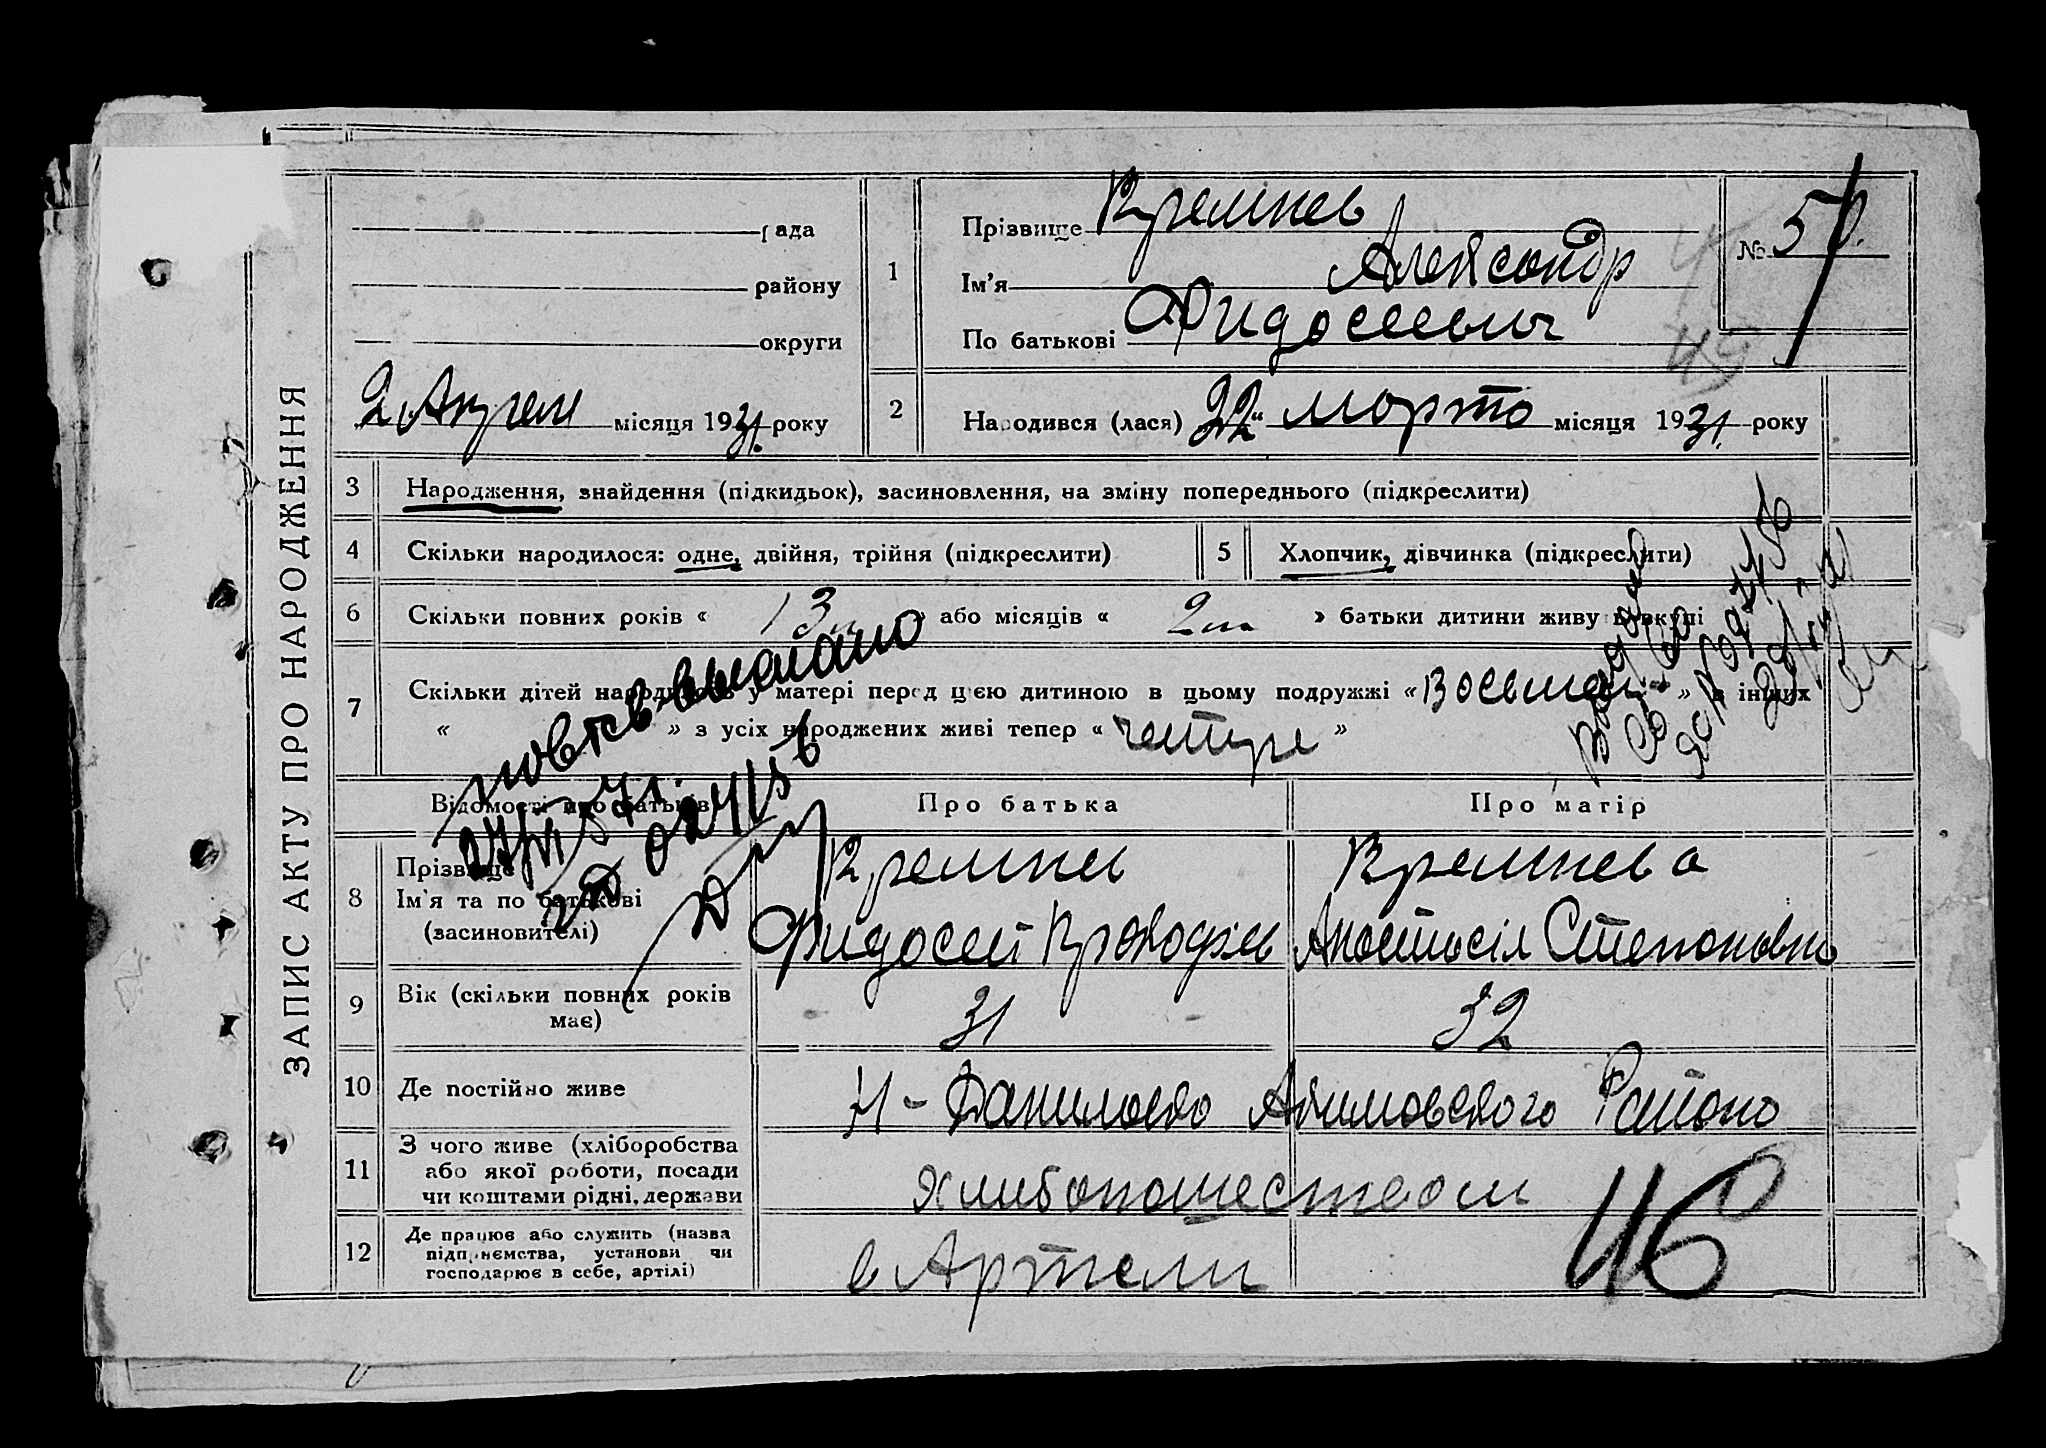 ЗАПИС АКТУ ПРО НАРОДЖЕННЯ
рада
району
округи
2 Апреля місяця 1931. року
1
Прізвище Кремнев
Ім'я Александр
По батькові Фидосеевич
№ 50.
45
2
Народився (лася) 22 " марта місяця 1931. року
3
Народження, знайдення (підкидьок), засиновлення, на зміну попереднього (підкреслити)
4
Скільки народилося: одне, двійня, трійня (підкреслити)
5
Хлопчик, дівчинка (підкреслити)
6
Скільки повних років « 13 л » або місяців « 2 м » батьки дитини живуть вкупі
7
Скільки дітей народилося у матері перед цією дитиною в цьому подружжі « Восьмая » в інших
« » з усіх народжених живі тепер « четире »
Повтсв. выслано
Відомості про батьків
Про батька
Про матір
8
Прізвище
Ім'я та по батькові
(засиновителі)
Кремнев
Фидосей Прокофев
Кремнева
Анастасія Степановна
9
Вік (скільки повних років
має)
31
32
10
Де постійно живе
Н-Даниловка Акимовского Района
11
З чого живе (хліборобства
або якої роботи, посади
чи коштами рідні, держави
Хлибопашеством
12
Де працює або служить (назва
підприємства, установи чи
господарює в себе, артілі)
в Артели
46